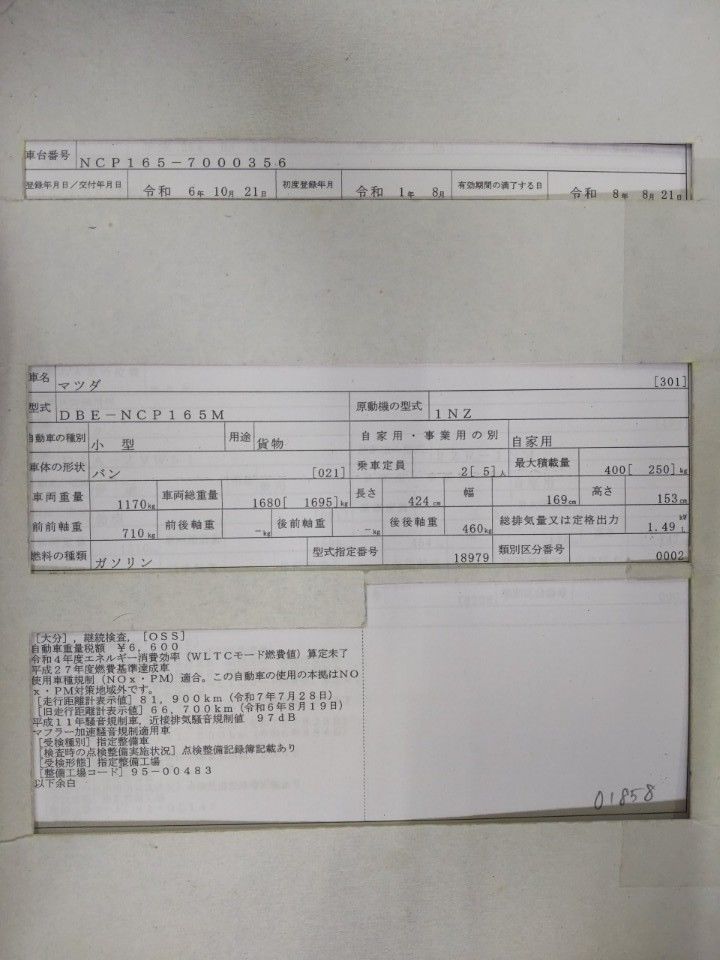 車台番号 NCP165-7000356
登録年月日/交付年月日 令和 6年 10月 21日 初度登録年月 令和 1年 8月 有効期間の満了する日 令和 8年 8月21日
車名 マツダ [301]
型式 DBE-NCP165M 原動機の型式 1NZ
自動車の種別 小 型 用途 貨物 自家用・事業用の別 自家用
車体の形状 バン [021] 乗車定員 2[ 5]人 最大積載量 400[ 250]kg
車両重量 1170kg 車両総重量 1680[ 1695]kg 長さ 424cm 幅 169cm 高さ 153cm
前前軸重 710kg 前後軸重 -kg 後前軸重 -kg 後後軸重 460kg 総排気量又は定格出力 1.49 kW L
燃料の種類 ガソリン 型式指定番号 18979 類別区分番号 0002
[大分],継続検査,[OSS]
自動車重量税額 ¥6,600
令和4年度エネルギー消費効率(WLTCモード燃費値)算定未了
平成27年度燃費基準達成車
使用車種規制(NOx・PM)適合。この自動車の使用の本拠はNO
x・PM対策地域外です。
[走行距離計表示値]81,900km(令和7年7月28日)
[旧走行距離計表示値]66,700km(令和6年8月19日)
平成11年騒音規制車,近接排気騒音規制値 97dB
マフラー加速騒音規制適用車
[受検種別]指定整備車
[検査時の点検整備実施状況]点検整備記録簿記載あり
[受検形態]指定整備工場
[整備工場コード]95-00483
以下余白
01858